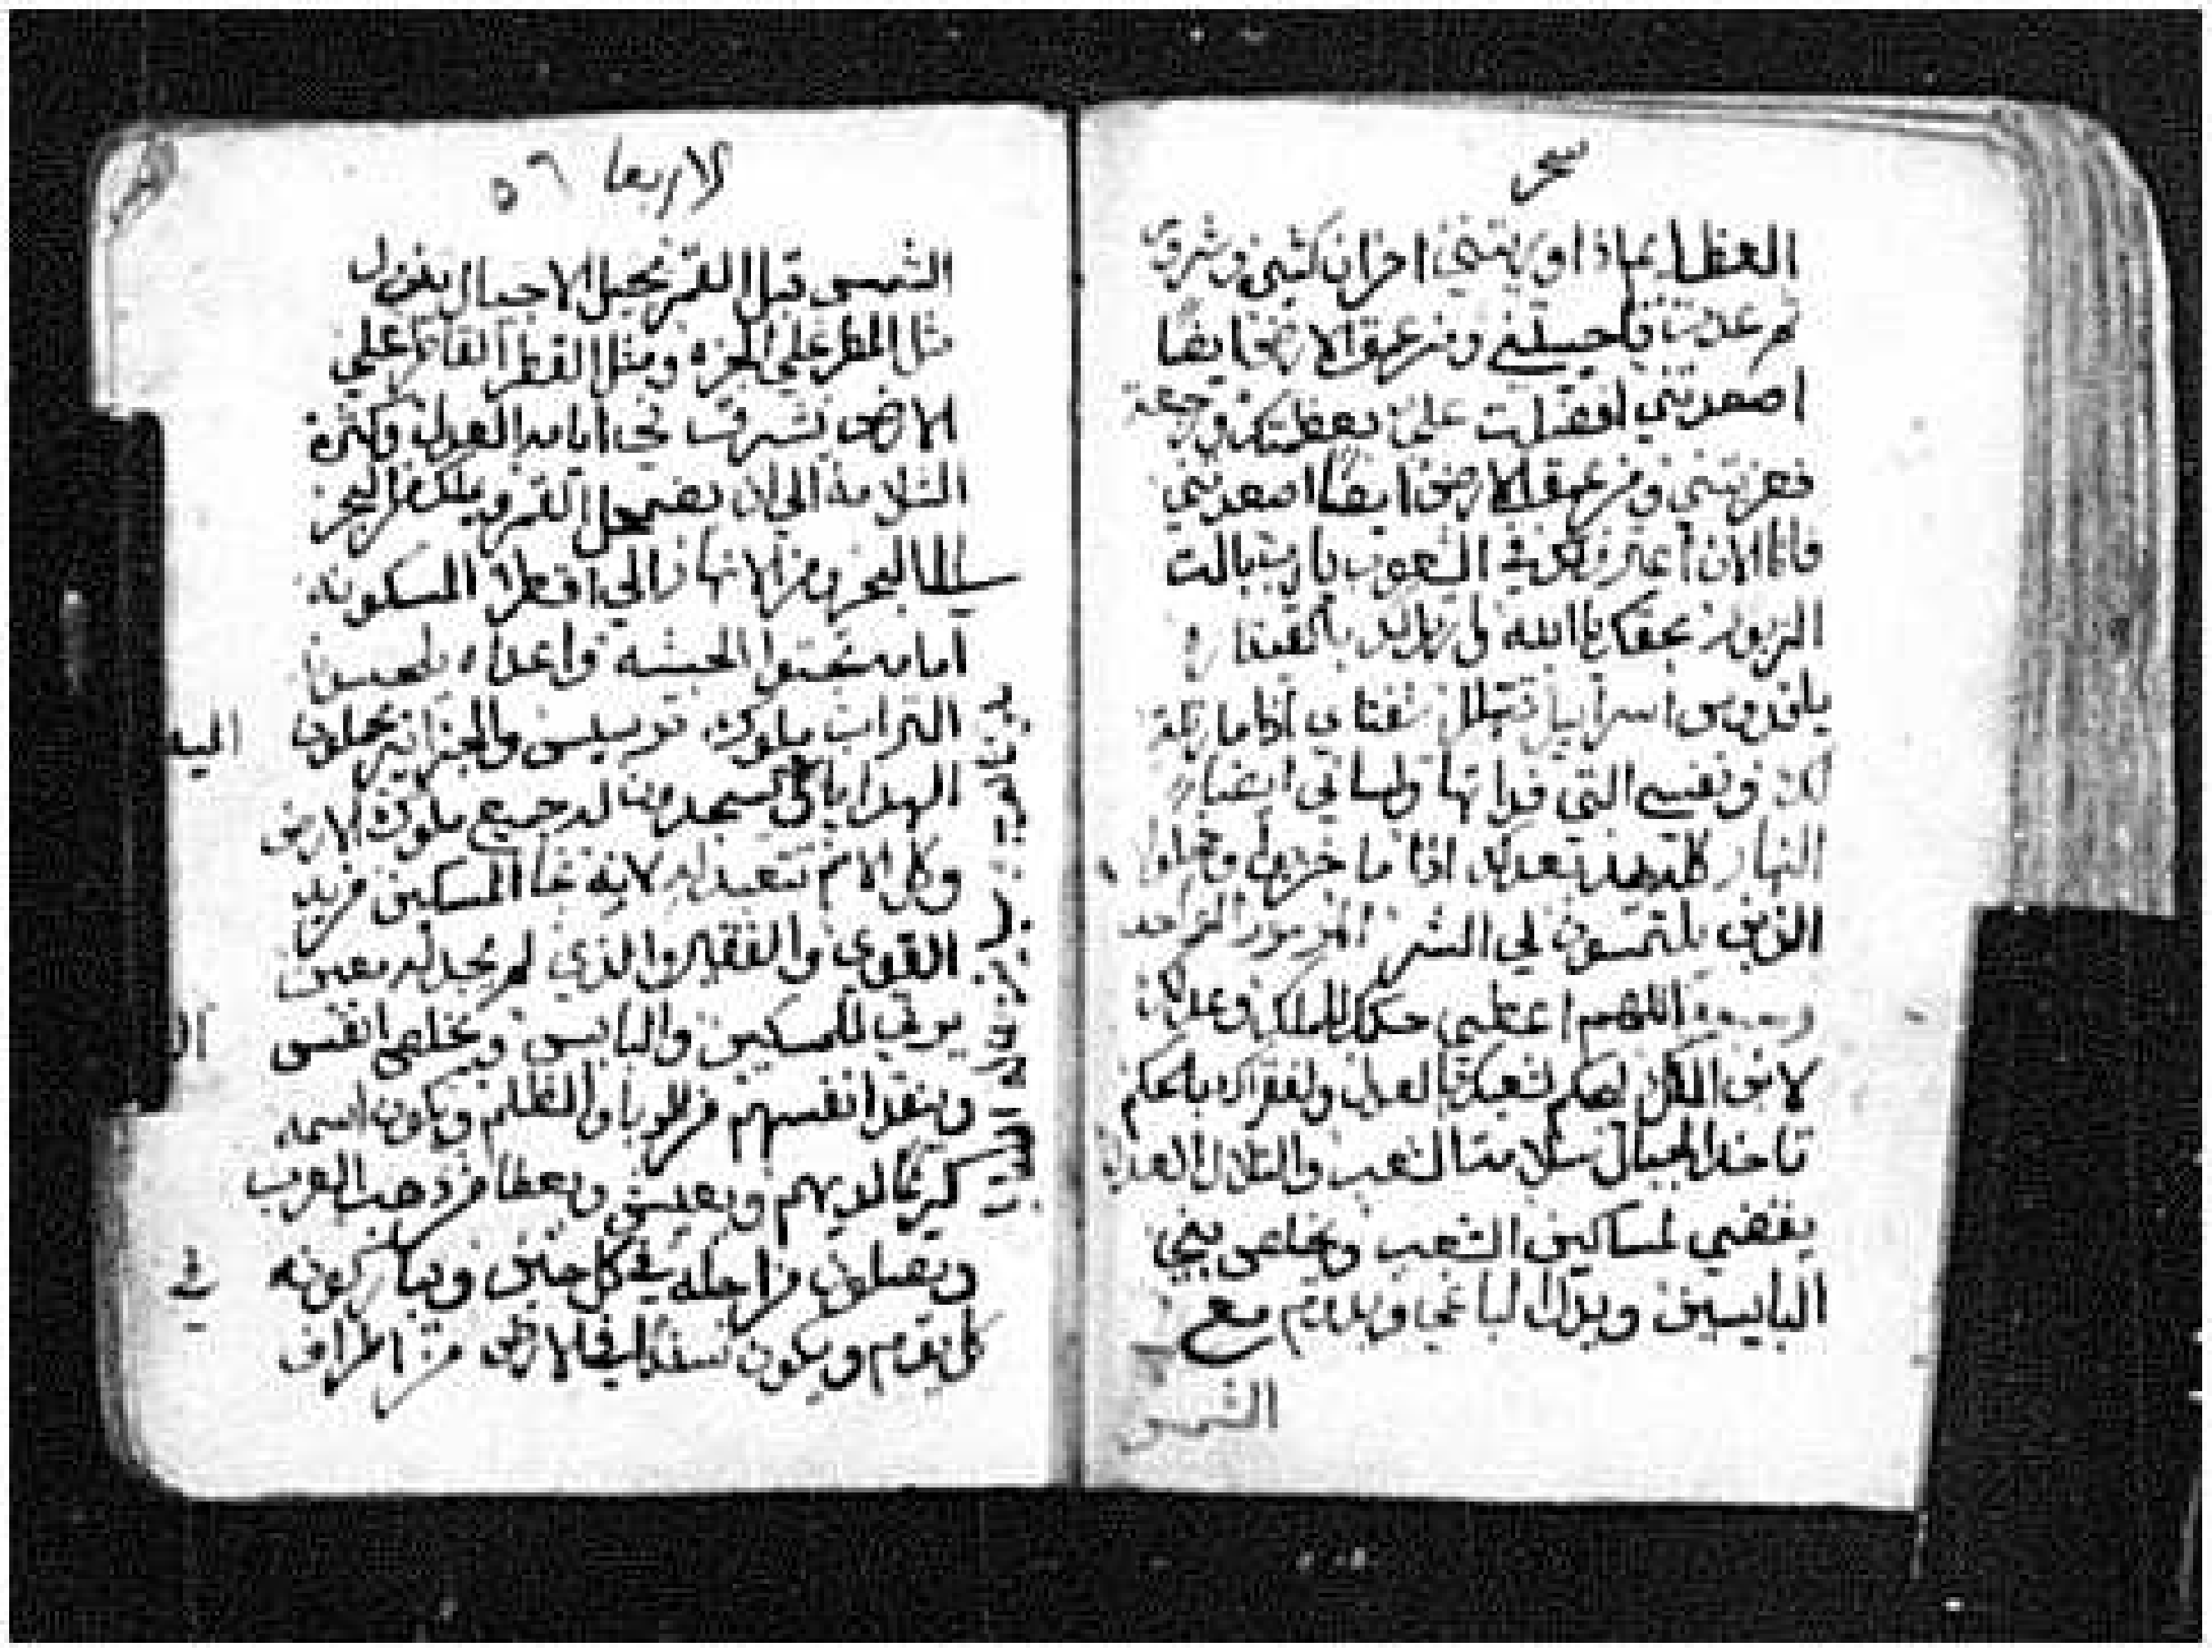 سحر
العظايم اذ اوريتني احزان كثيره وشرور
ثم عدت فاحييتني ومن عمق الارض ايضا
اصعدتني افضلت علي بعظمتك ورجعت
فعزيتني ومن عمق الارض ايضا اصعدتني
فانا الان اعترف لك في الشعوب يارب بالت
الزبور بحقك ياالله وارتل لك بالقيثار
ياقدوس اسراييل تتهلل شفتاي اذا ما رتلت
لك ونفسي التي فديتها ولساني ايضا
النهار كله يهذ بعدلك اذا ما خزيوا وخجلوا
الذين يلتمسون لي الشر المزمور الواحد
وسبعون اللهم اعطي حكمك للملك وعدلك
لابن الملك ليحكم لشعبك بالعدل ولفقراك بالحكم
تاخذ الجبال سلامة الشعب والتلال العدل
يقضي لمساكين الشعب ويخلص بني
البايسين ويذل الباغي ويدوم مع
الشمس
الاربعا ٥٦
الشمس قبل القمر بجيل الاجيال ينزل
مثل المطر علي الجزه ومثل القطر القاطر علي
الارض يشرق في ايامه العدل وكثرة
السلامة الي ان يضمحل القمر ويملك من البحر
الي البحر ومن الانهار الي اقطار المسكونه
امامه تجثوا الحبشه واعداه يلحسون
التراب ملوك ترسيس والجزاير يحملون
الهدايا لك يسجدون له جميع ملوك الارض
وكل الامم تتعبد له لانه نجا المسكين من يد
القوي والفقير الذي لم يجد له معين
يرثي للمسكين والبايس ويخلص انفس
وينقذ انفسهم من الربا والظلم ويكون اسمه
كريما لديهم ويعيش ويعطا من ذهب العرب
ويصلون من اجله في كل حين ويباركونه
كل يوم ويكون سندا في الارض من اطراف
في